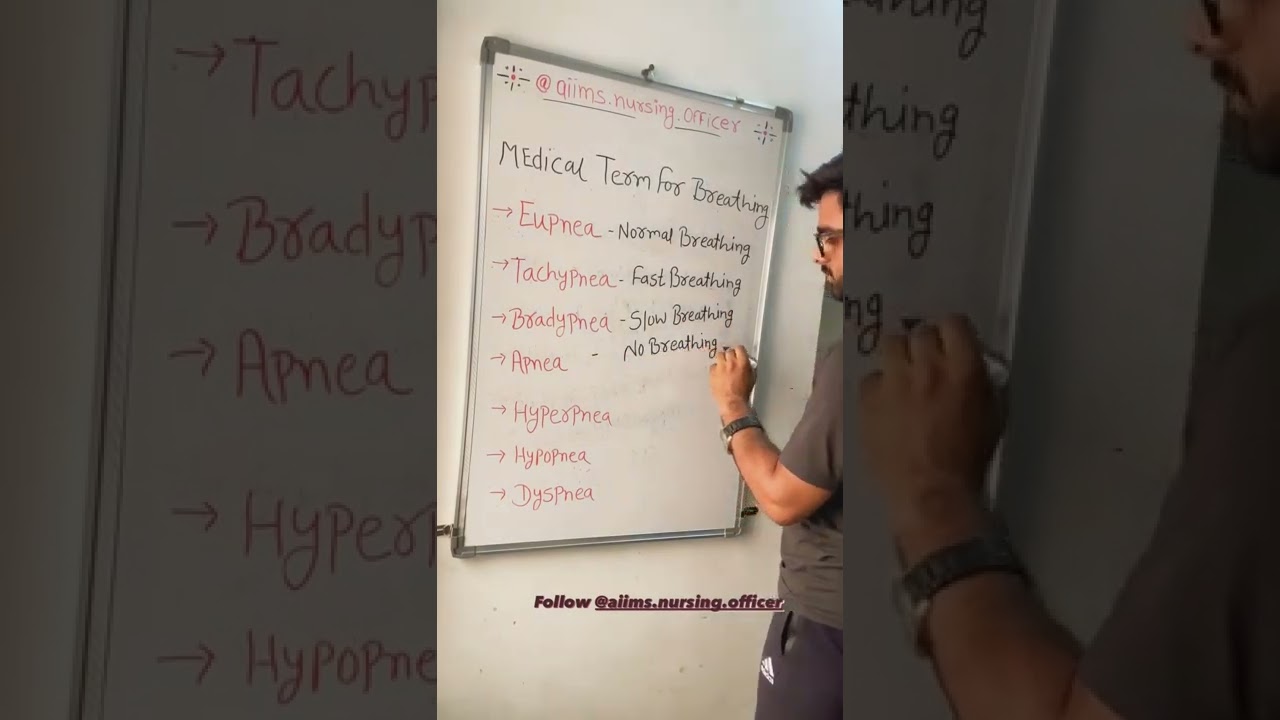 @aiims.nursing.officer
Medical Term for Breathing
→ Eupnea - Normal Breathing
→ Tachypnea - Fast Breathing
→ Bradypnea - Slow Breathing
→ Apnea - No Breathing
→ Hyperpnea
→ Hypopnea
→ Dyspnea
Follow @aiims.nursing.officer